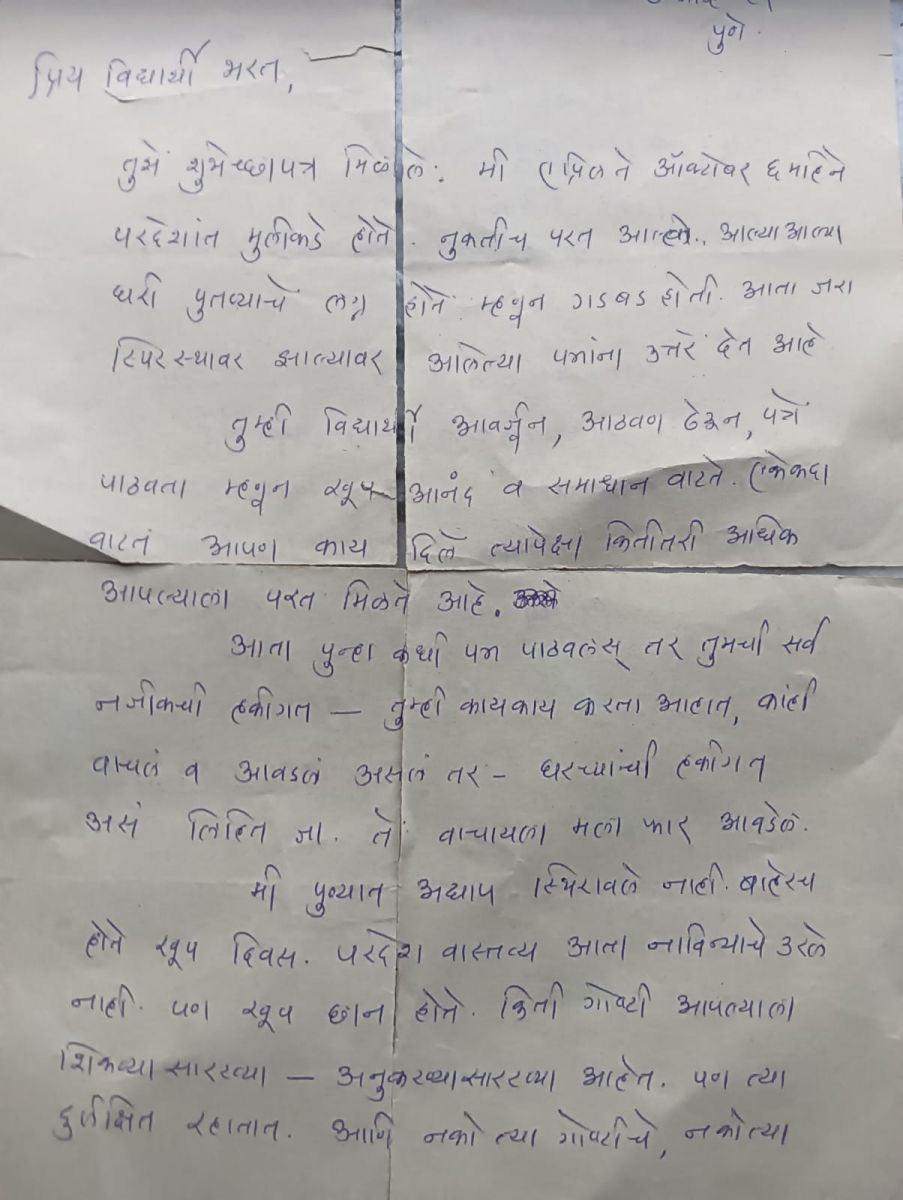 पुणे.
प्रिय विद्यार्थी भरत,
तुझें शुभेच्छापत्र मिळाले. मी एप्रिल ते ऑक्टोबर ६ महिने
परदेशांत मुलीकडे होते. नुकतीच परत आले.. आल्या आल्या
घरी पुतण्याचे लग्न होते म्हणून गडबड होती. आता जरा
स्थिरस्थावर झाल्यावर आलेल्या पत्रांना उत्तरे देत आहे
तुम्ही विद्यार्थी आवर्जून, आठवण ठेऊन, पत्रे
पाठवता म्हणून खूप आनंद व समाधान वाटते. एकेकदा
वाटतं आपण काय दिलें त्यापेक्षा कितीतरी अधिक
आपल्याला परत मिळते आहे.
आता पुन्हा कधी पत्र पाठवलंस् तर तुमची सर्व
नजीकची हकीगत — तुम्ही कायकाय करता आहात, कांही
वाचलं व आवडलं असलं तर – घरच्यांची हकीगत
असं लिहित जा. ते वाचायला मला फार आवडेल.
मी पुण्यात अद्याप स्थिरावले नाही. बाहेरच
होते खूप दिवस. परदेश वास्तव्य आता नाविन्याचे उरले
नाही. पण खूप छान होते. किती गोष्टी आपल्याला
शिकण्यासारख्या — अनुकरण्यासारख्या आहेत. पण त्या
दुर्लक्षित रहातात. आणि नको त्या गोष्टीचे, नको त्या